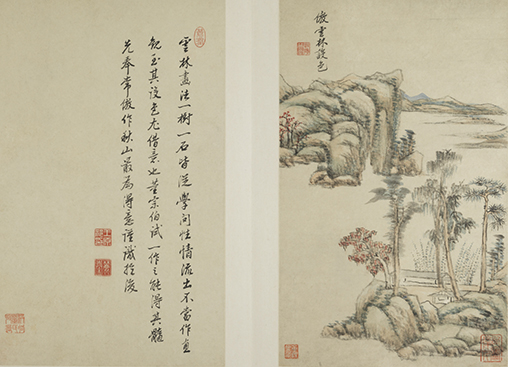 倣雲林設色
雲林畫法一樹一石皆從學問性情流出不當作畫
觀至其設色尤借意也董宗伯試一作之能得其髓
先奉常倣作秋山最為得意謹識於後